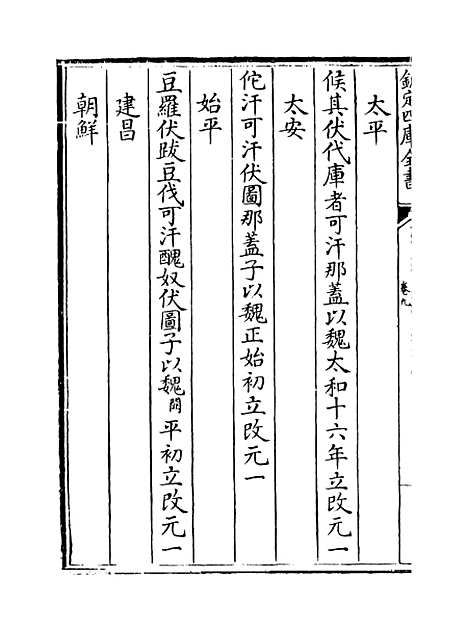 欽定四庫全書
卷九
太平
候其伏代庫者可汗那蓋以魏太和十六年立改元一
太安
佗汗可汗伏圖那蓋子以魏正始初立改元一
始平
豆羅伏跋豆伐可汗醜奴伏圖子以魏閞平初立改元一
建昌
朝鮮